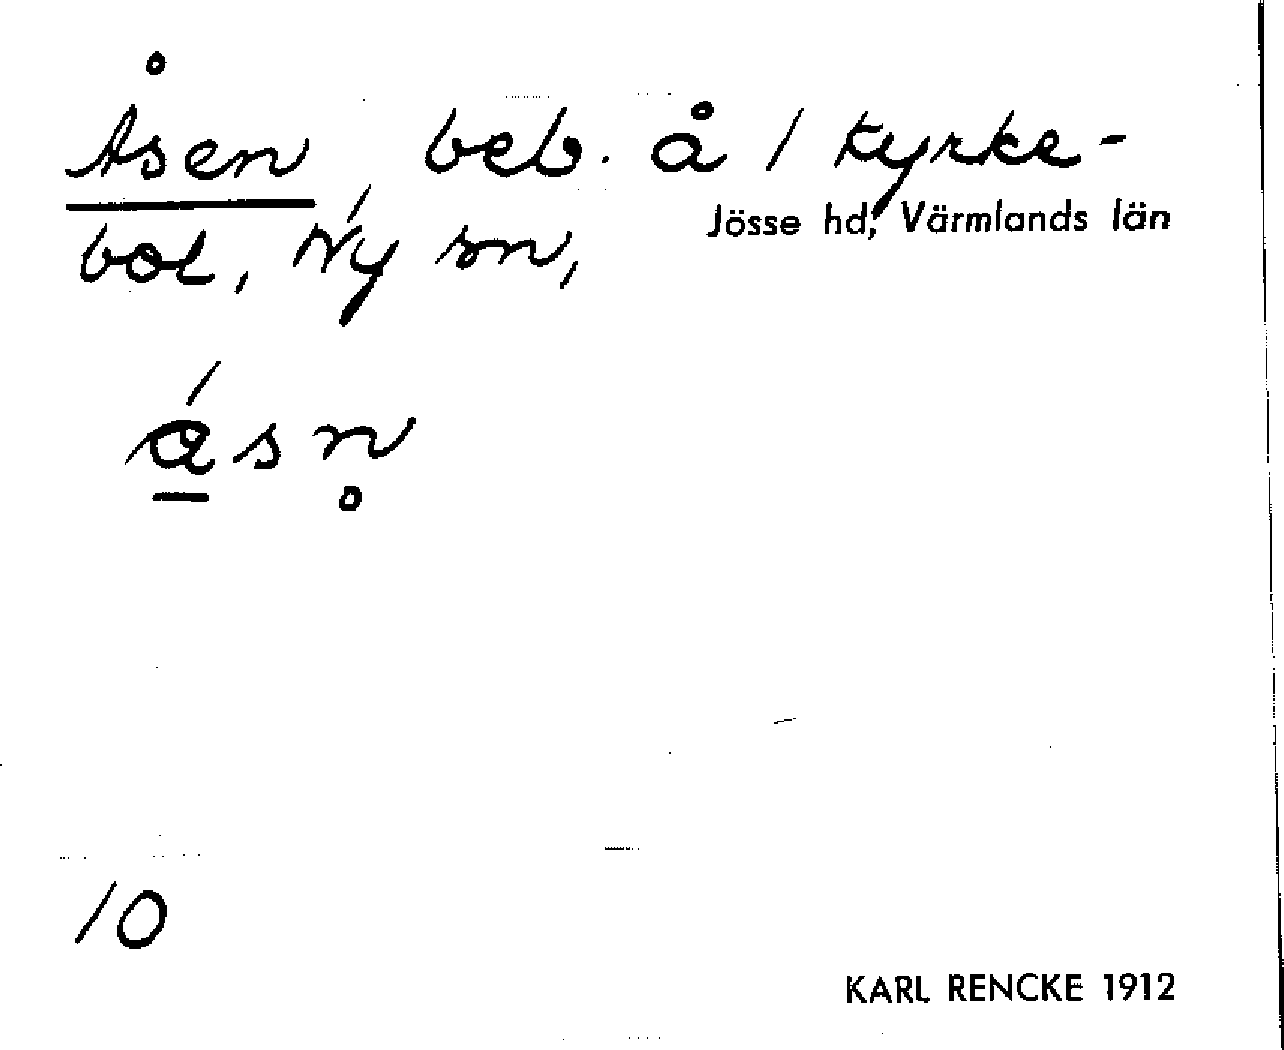 Åsen, beb. å 1 Kyrke-
bol, Ny sn,
Jösse hd, Värmlands län
ásn̥
10
KARL RENCKE 1912